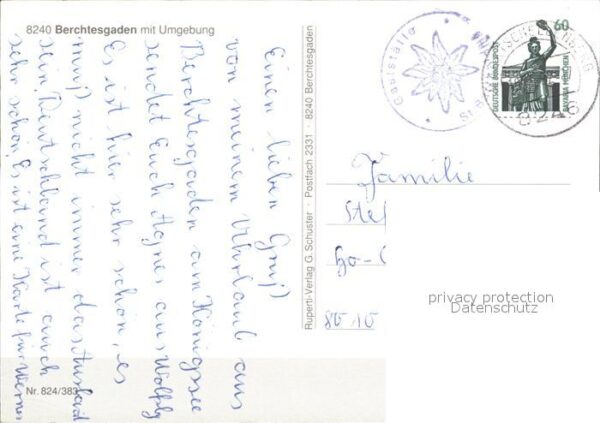 8240 Berchtesgaden mit Umgebung
Einen lieben Gruß
von meinem Uhrlaub aus
Berchtesgaden am Königssee
sendet Euch Agnes aus Wolfsbg
Es ist hier sehr schön, es
muß nicht immer das Ausland
sein, Deutschland ist auch
sehr schön. Es ist eine Karte für Werner
Nr. 824/383
Ruperti-Verlag G. Schuster · Postfach 2331 · 8240 Berchtesgaden
Gaststätte
60
DEUTSCHE BUNDESPOST
BAVARIA MÜNCHEN
Familie
Stef
80-10
privacy protection
Datenschutz